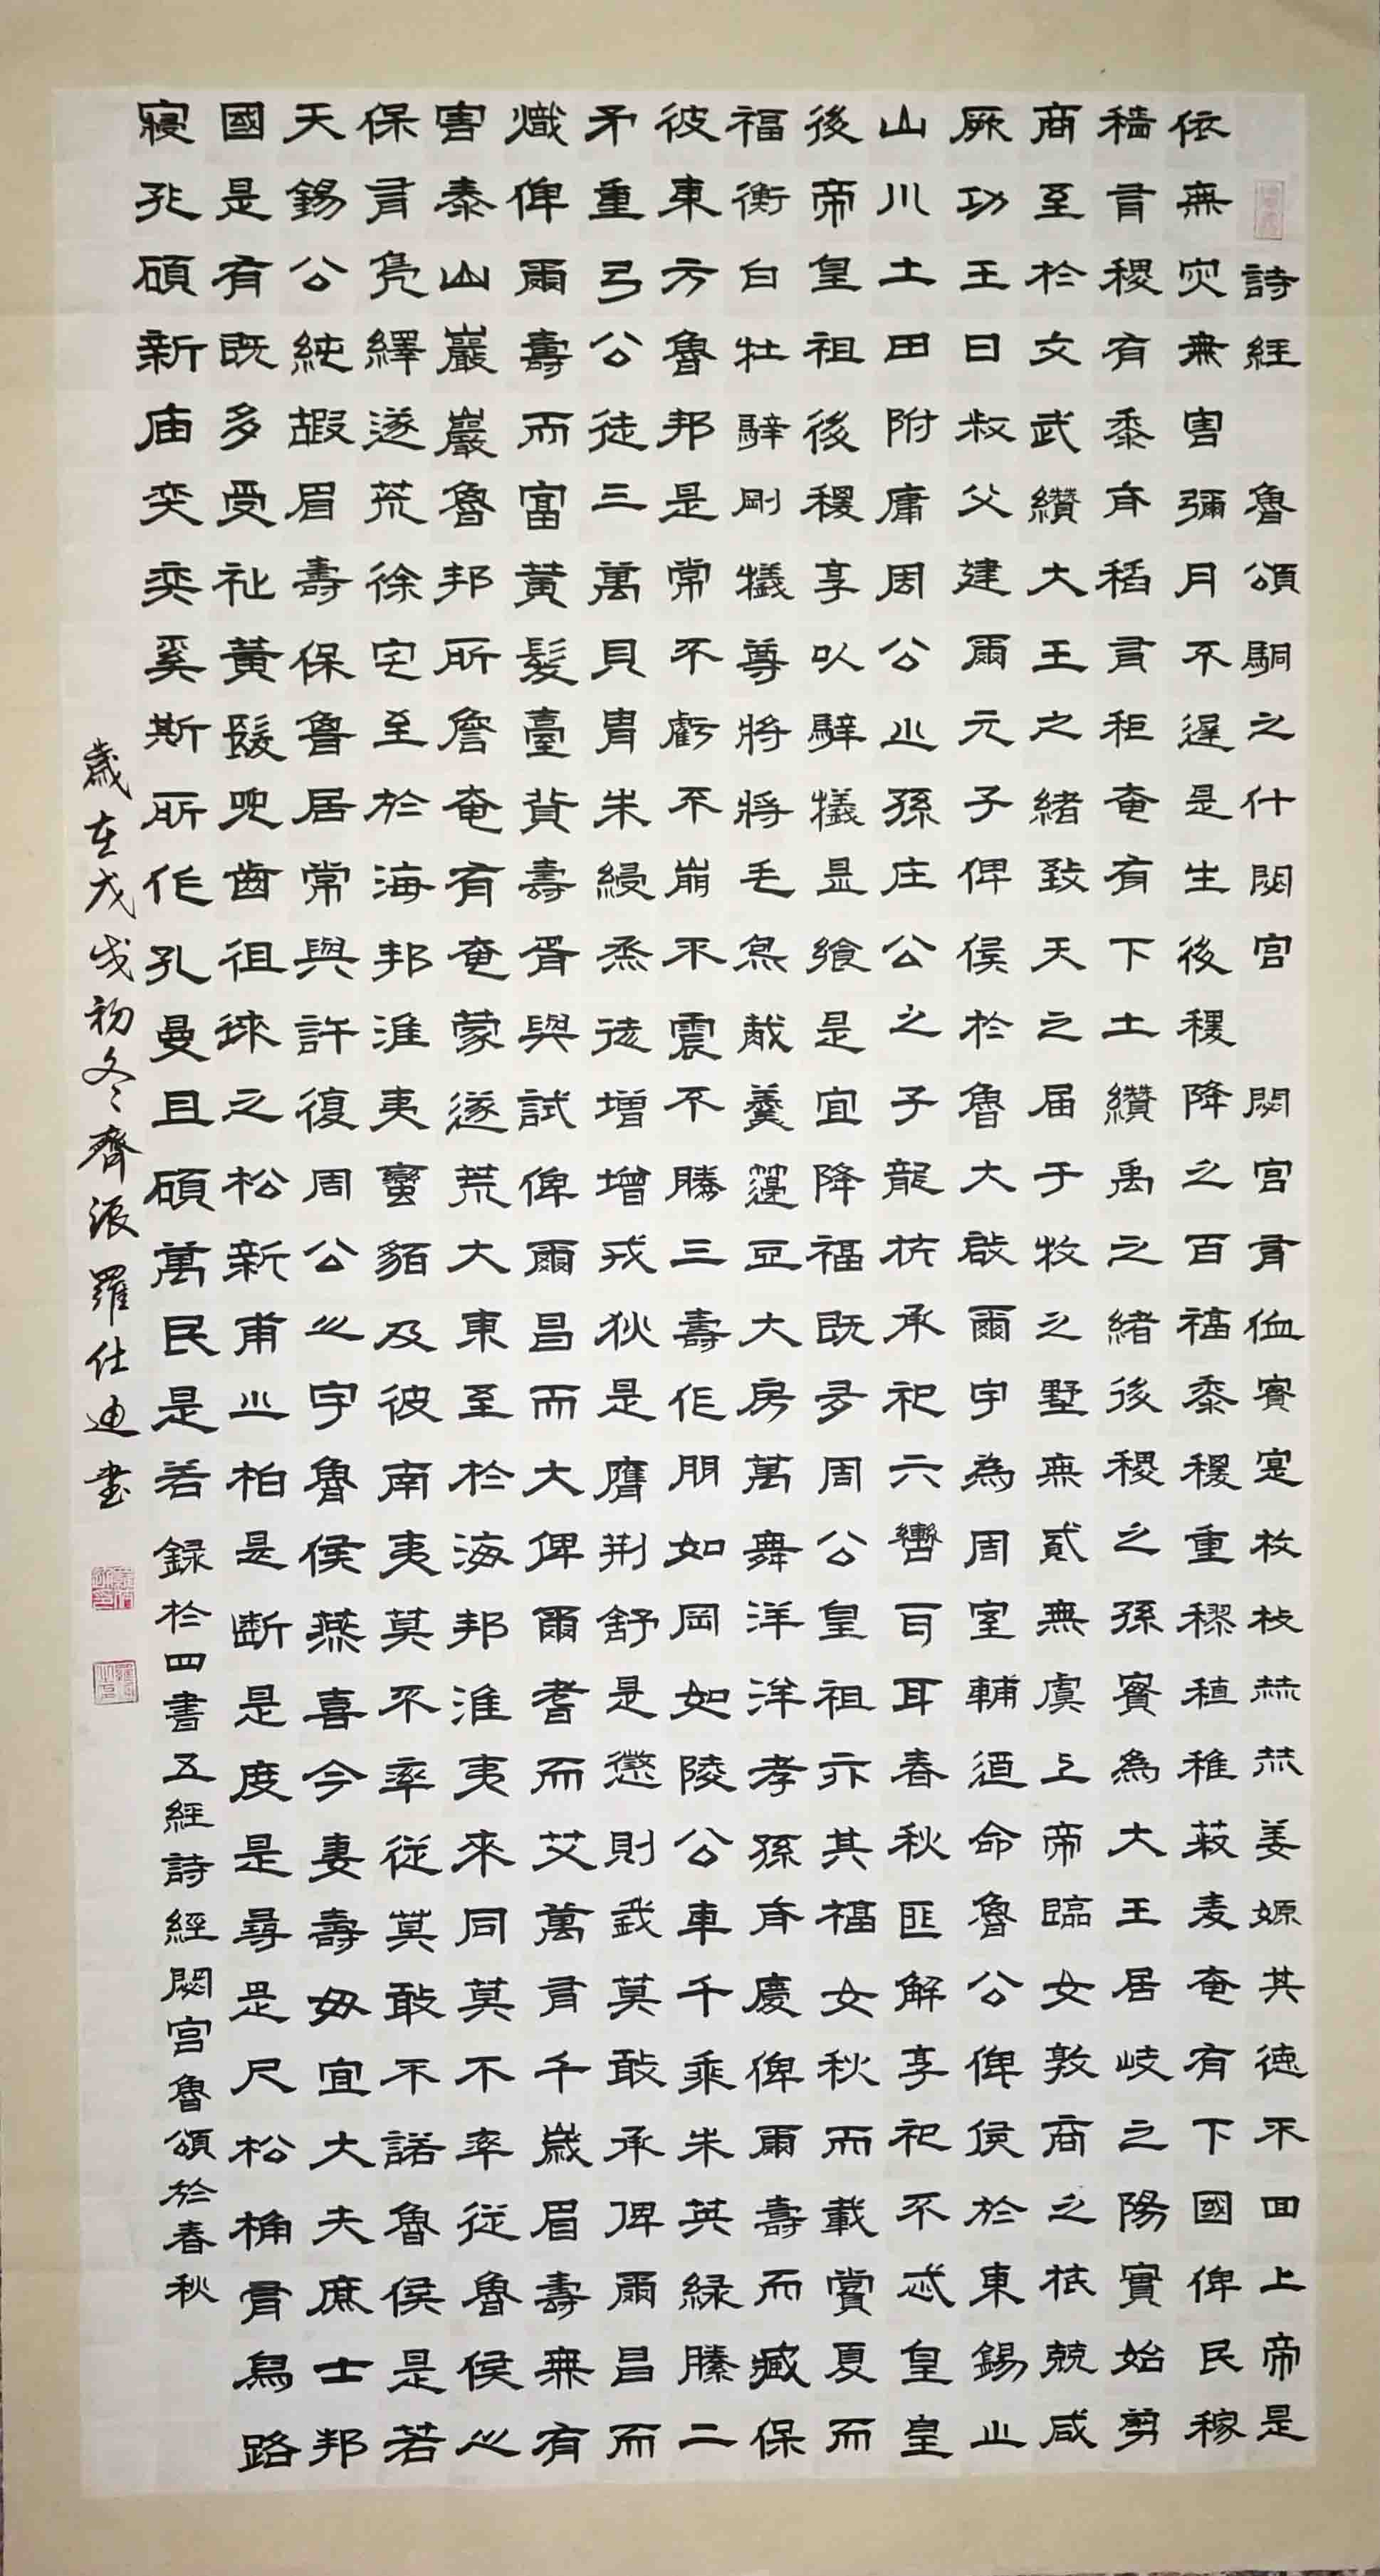 詩經 魯頌 駉之什 閟宮 閟宮有侐實寔枚枚赫赫姜嫄其德不回上帝是
依無灾無害彌月不遲是生後稷降之百福黍稷重穋稙稚菽麦奄有下國俾民稼
穡有稷有黍有稻有秬奄有下土纘禹之緒後稷之孫實為大王居岐之陽實始剪
商至於文武纘大王之緒致天之届于牧之墅無貳無虞上帝臨女敦商之旅克咸
厥功王曰叔父建爾元子俾侯於魯大啟爾宇為周室輔迺命魯公俾侯於東錫之
山川土田附庸周公之孫庄公之子龍旂承祀六轡耳耳春秋匪解享祀不忒皇皇
後帝皇祖後稷享以騂犧是飨是宜降福既多周公皇祖亦其福女秋而載賞夏而
福衡白牡騂剛犧尊將將毛炰胾羹籩豆大房萬舞洋洋孝孫有慶俾爾壽而臧保
彼東方魯邦是常不虧不崩不震不騰三壽作朋如岡如陵公車千乘朱英緑縢二
矛重弓公徒三萬貝胄朱綅烝徒增增戎狄是膺荆舒是懲則我莫敢承俾爾昌而
熾俾爾壽而富黃髮臺背壽胥與試俾爾昌而大俾爾耆而艾萬有千歲眉壽無有
害泰山巖巖魯邦所詹奄有奄蒙遂荒大東至於海邦淮夷來同莫不率從魯侯之
保有凫繹遂荒徐宅至於海邦淮夷蠻貊及彼南夷莫不率從莫敢不諾魯侯是若
天錫公純嘏眉壽保魯居常與許復周公之宇魯侯燕喜今妻壽母宜大夫庶士邦
國是有既多受祉黃髮兒齒徂徠之松新甫之柏是断是度是尋是尺松桷有舄路
寢孔碩新庙奕奕奚斯所作孔曼且碩萬民是若 録於四書五經詩經閟宮魯頌於春秋
歲在戊戌初冬齊派羅仕迪書